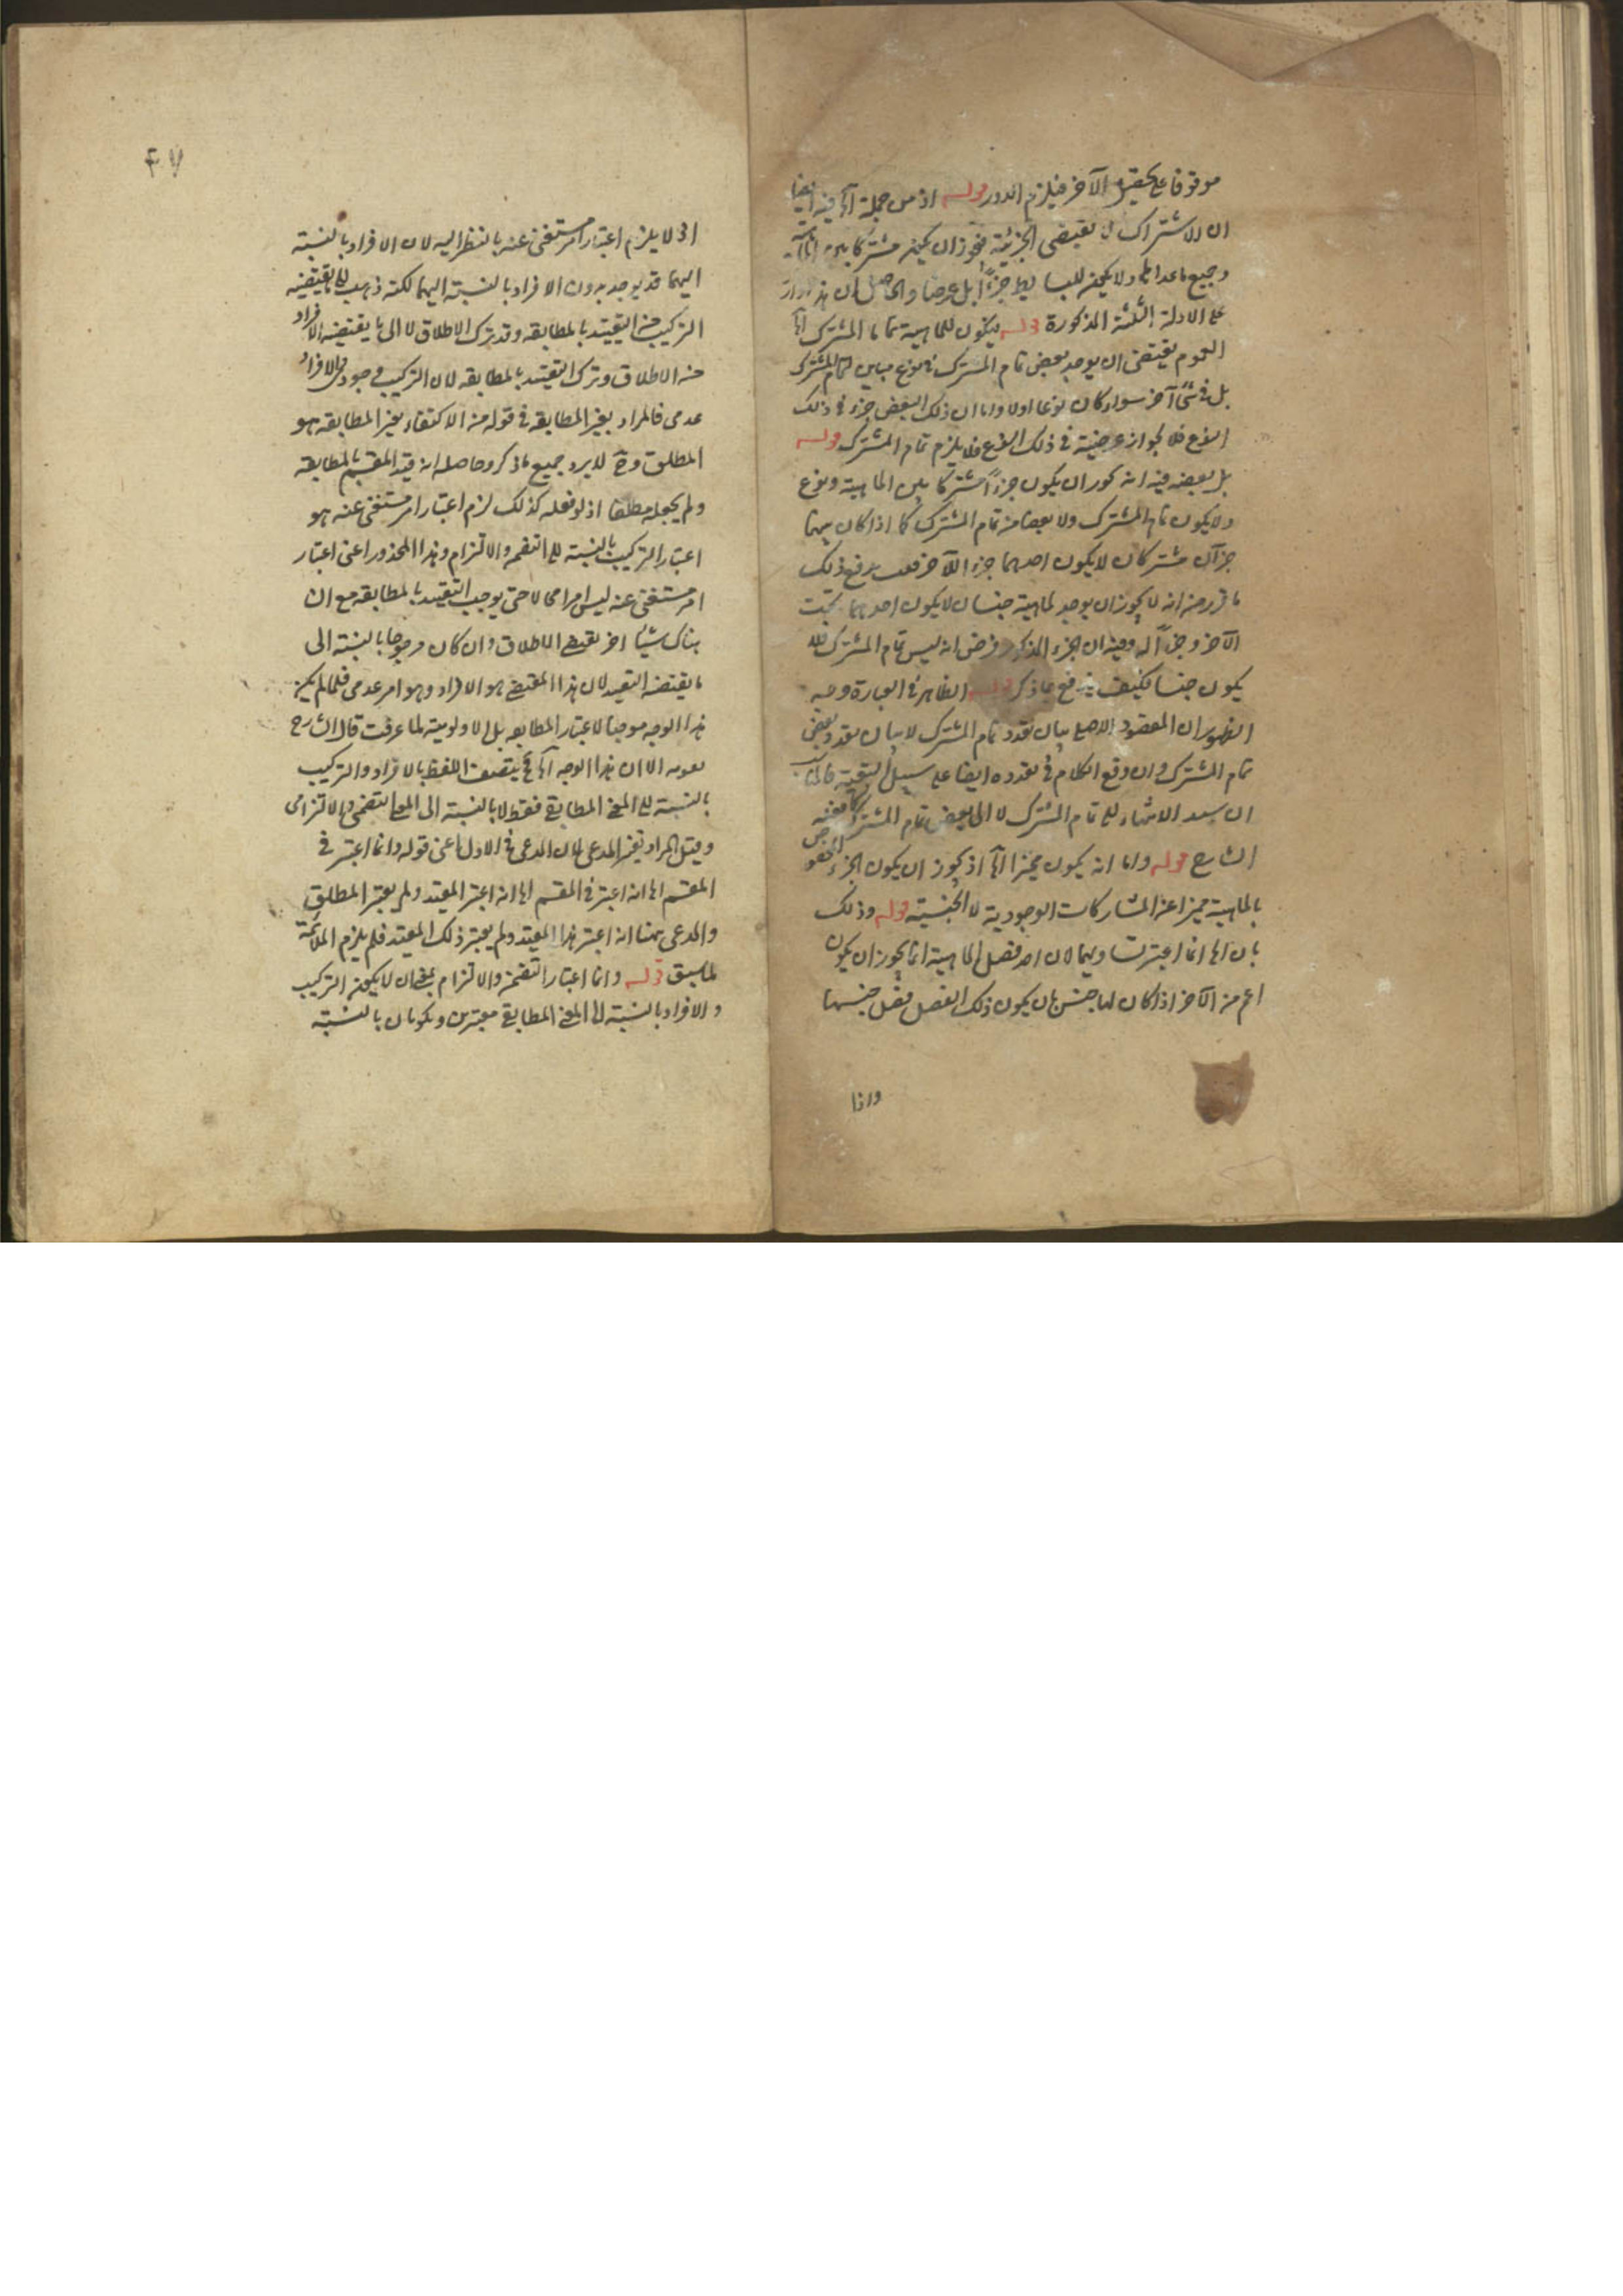 موقوفا على الآخر فيلزم الدور قوله اذ من جملة الخ فيه ايضا
ان الاشتراك لا يقتضى الجزئية فيجوز ان يكون مشتركا بين
وجميع ما عداها ولا يكون للبسايط جزءا بل عرضا والحاصل ان هذا
على الادلة الثلثة المذكورة قوله فيكون للماهية تماما المشترك الخ
العموم يقتضى ان يوجد بعض تمام المشترك فى نوع مباين لتمام المشترك
بل فى شئ آخر سواء كان نوعا اولا واما ان ذلك البعض جزء فى ذلك
النوع فلا لجواز عرضيته فى ذلك النوع فلا يلزم تمام المشترك قوله
بل بعضه فيه انه يجوز ان يكون جزءا مشتركا بين الماهية ونوع
ولا يكون تمام المشترك ولا بعضا من تمام المشترك كما اذا كان بينهما
جزآن مشتركان لا يكون احدهما جزء الآخر يدفع ذلك
ما قرر من انه لا يجوز ان يوجد لماهية جنسان لا يكون احدهما تحت
الآخر وجزأ له وفيه ان الجزء المذكور فرض انه ليس تمام المشترك
يكون جنسا فكيف يدفع بما ذكر قوله الظاهر فى العبارة وجه
الظهور ان المقصود الاصلى بيان تعدد تمام المشترك لا بيان تعدد بعض
تمام المشترك وان وقع الكلام فى تعدده ايضا على سبيل التبعية
ان يسند الانتهاء الى تمام المشترك لا الى بعض تمام المشترك كما فعله
الشارح قوله واما انه يكون مميزا الخ اذ يجوز ان يكون الجزء المختص
بالماهية مميزا عن المشاركات الوجودية لا الجنسية قوله وذلك
بان انما اعتبر تساويهما لان احد فصلى الماهية انما يجوز ان يكون
اعم من الآخر اذا كان لها جنس بان يكون ذلك الفصل فصل جنسها
واذا
اذ لا يلزم اعتبار امر مستغنى عنه بالنظر اليه لان الافراد بالنسبة
اليهما قد يوجد بدون الافراد بالنسبة اليهما لكنه ذهب الى ما يقتضيه
التركيب من التقييد بالمطابقه وقد ترك الاطلاق لا الى ما يقتضيه الافراد
من الاطلاق وترك التقييد بالمطابقه لان التركيب وجودى والافراد
عدمى فالمراد بغير المطابقه فى قوله من الاكتفاء بغير المطابقه هو
المطلق وح لا يرد جميع ما ذكر وحاصله انه قيد المقسم بالمطابقه
ولم يجعله مطلقا اذ لو فعله كذلك لزم اعتبار امر مستغنى عنه هو
اعتبار التركيب بالنسبة الى التضمن والالتزام وهذا المحذور اعنى اعتبار
امر مستغنى عنه ليس امرا محالا حتى يوجب التقييد بالمطابقه مع ان
هناك شيئا اخر يقتضى الاطلاق وان كان مرجوحا بالنسبة الى
ما يقتضيه التقييد لان هذا المقتضى هو الافراد وهو امر عدمى فلما لم يكن
هذا الوجه موجبا لاعتبار المطابقه بل الاولوية لما عرفت قال الشارح
قوله الا ان هذا الوجه الخ يتصف اللفظ بالافراد والتركيب
بالنسبة الى المعنى المطابقى فقط لا بالنسبة الى المعنى التضمنى والالتزامى
وقيل المراد بغير المدعى لان المدعى فى الاول اعنى قوله وانما اعتبر فى
المقسم انه اعتبر فى المقسم انه اعتبر المقيد ولم يعتبر المطلق
والمدعى هنا انه اعتبر هذا المقيد ولم يعتبر ذلك المقيد فلم يلزم الملائمة
لما سبق قوله وانما اعتبار التضمن والالتزام بمعنى ان لا يكون التركيب
والافراد بالنسبة الى المعنى المطابقى معتبرين ويكونان بالنسبة